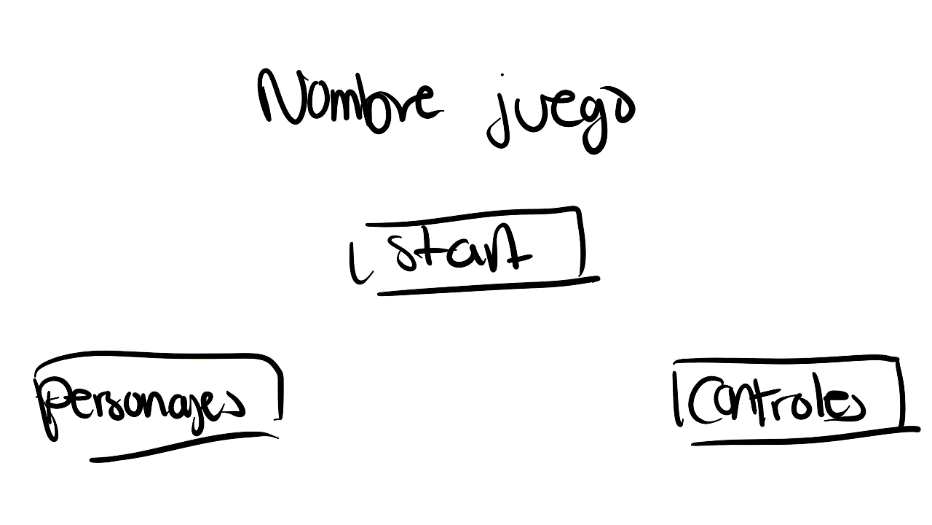 Nombre juego
start
Personajes
Controles